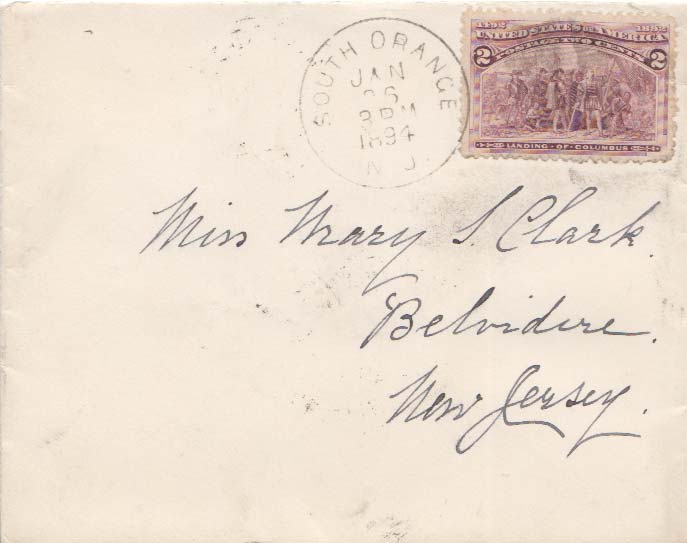 1492 1892
UNITED STATES OF AMERICA
POSTAGE TWO CENTS
2 2
LANDING · OF · COLUMBUS
SOUTH ORANGE
JAN
3 PM
1894
N J
Miss Mary S. Clark.
Belvidere.
New Jersey.